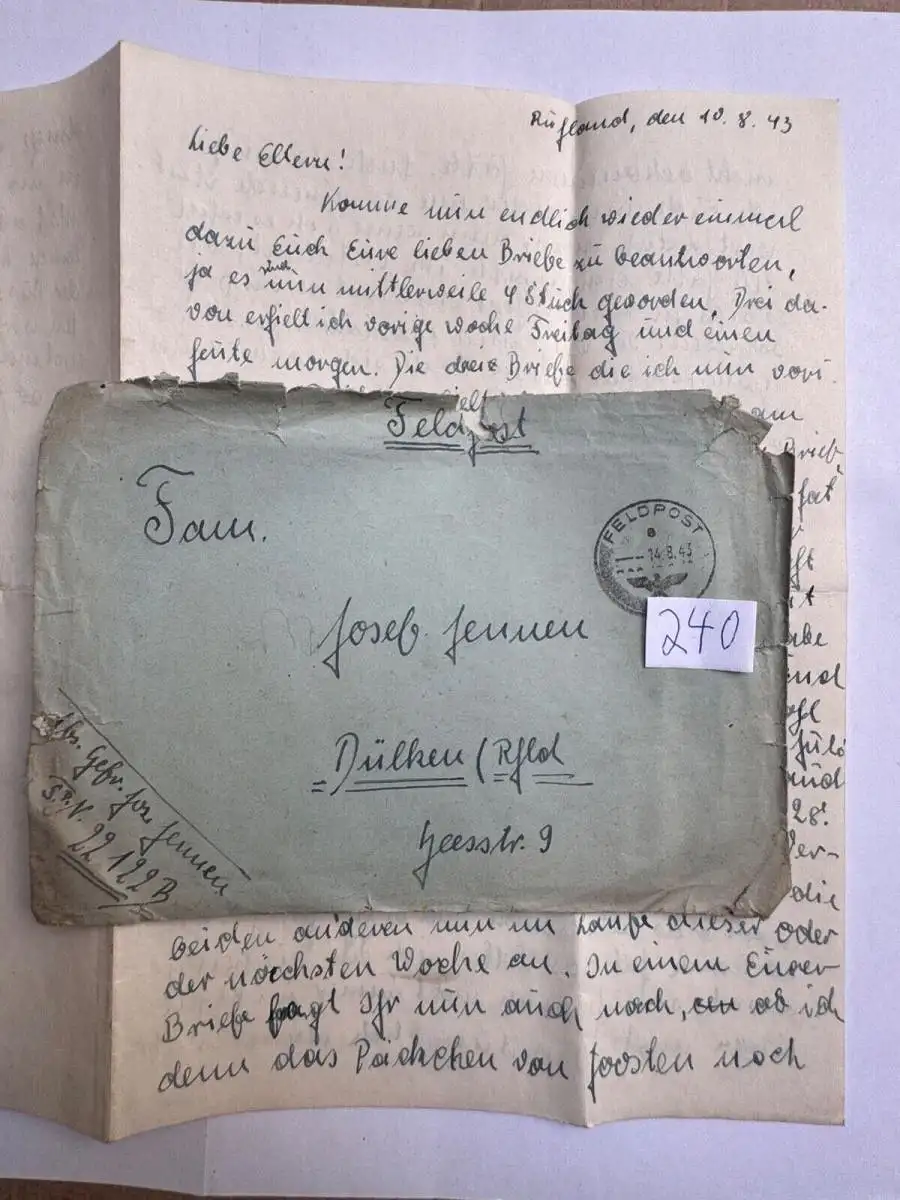 Rußland, den 10. 8. 43
Liebe Eltern!
Komme nun endlich wieder einmal
dazu Euch Eure lieben Briefe zu beantworten,
ja es sind nun mittlerweile 4 Stück geworden. Drei da-
von erhielt ich vorige Woche Freitag und einen
heute morgen. Die drei Briefe die ich nun vori-
am
Brief
hat
und
28.
Ver-
die
Feldpost
Fam.
Josef Jennen
Dülken (Rhld
Heesstr. 9
FELDPOST
a
14.8.43
240
Abs. Gefr. Jos. Jennen
F.P.N. 22122B
beiden anderen nun im Laufe dieser oder
der nächsten Woche an. In einem Eurer
Briefe fragt Ihr nun auch nach, ob ich
denn das Päckchen von Joosten noch